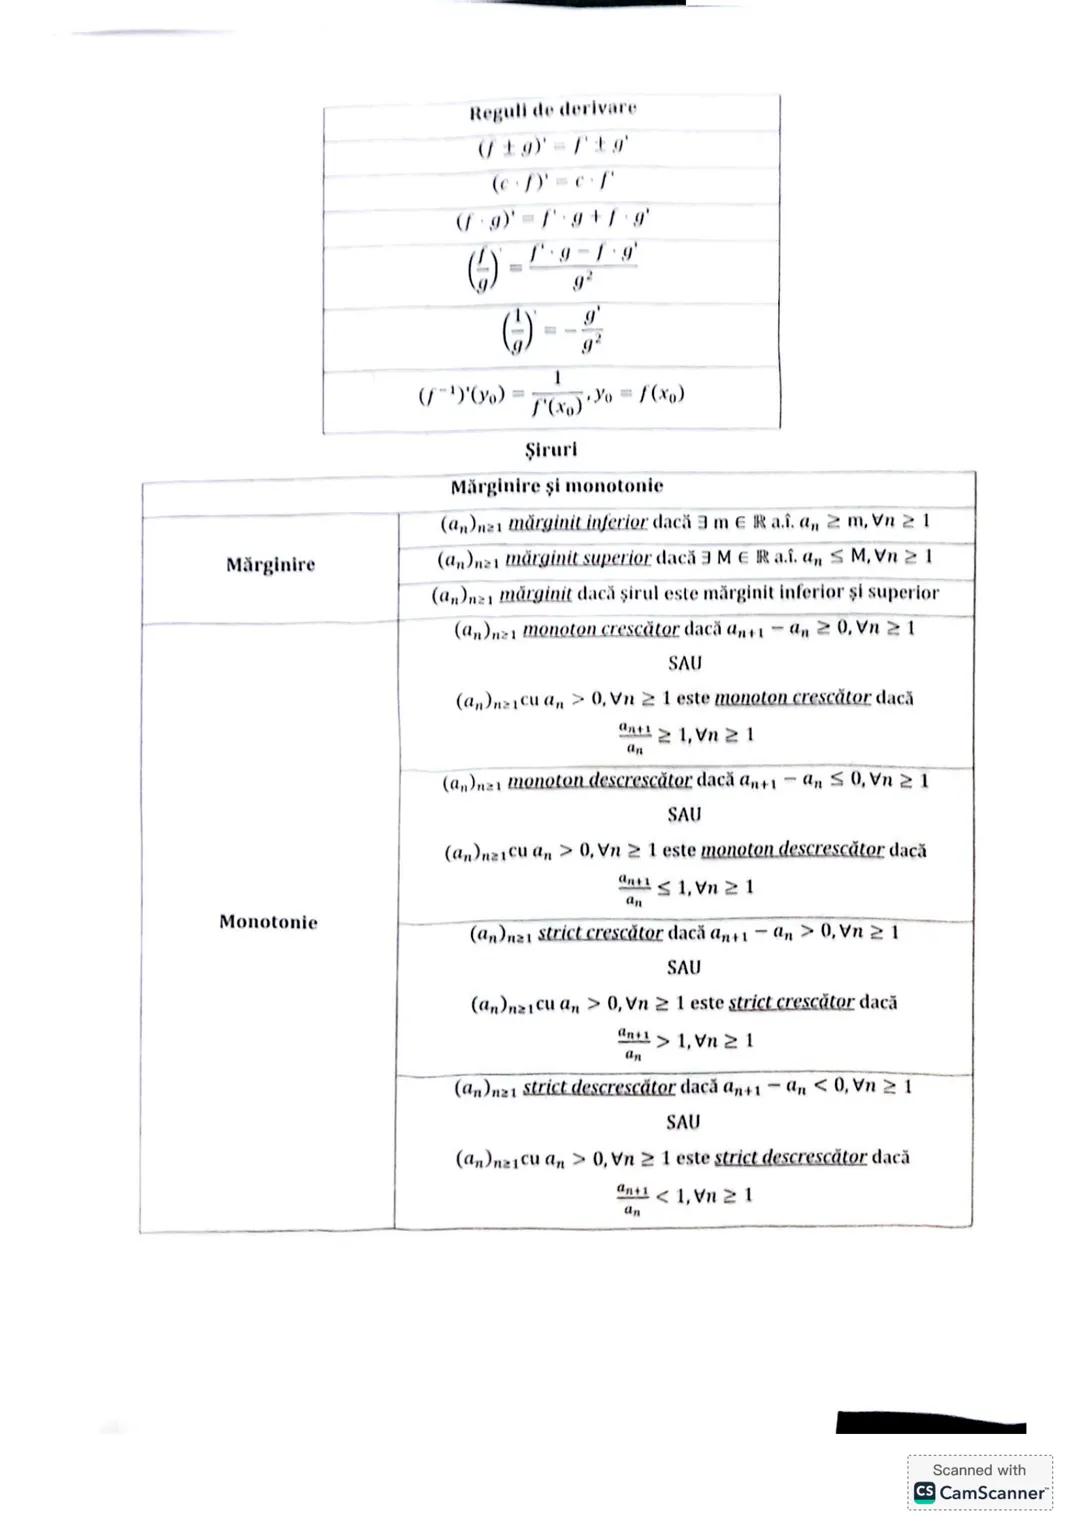 Reguli de derivare
(f ± g)' = f' ± g'
(c · f)' = c · f'
(f · g)' = f' · g + f · g'
(f/g)' = (f' · g − f · g')/g²
(1/g)' = − g'/g²
(f⁻¹)'(y₀) = 1/f'(x₀), y₀ = f(x₀)
Șiruri
Mărginire și monotonie
Mărginire
(aₙ)ₙ≥₁ mărginit inferior dacă ∃ m ∈ ℝ a.î. aₙ ≥ m, ∀n ≥ 1
(aₙ)ₙ≥₁ mărginit superior dacă ∃ M ∈ ℝ a.î. aₙ ≤ M, ∀n ≥ 1
(aₙ)ₙ≥₁ mărginit dacă șirul este mărginit inferior și superior
Monotonie
(aₙ)ₙ≥₁ monoton crescător dacă aₙ₊₁ − aₙ ≥ 0, ∀n ≥ 1
SAU
(aₙ)ₙ≥₁ cu aₙ > 0, ∀n ≥ 1 este monoton crescător dacă
aₙ₊₁/aₙ ≥ 1, ∀n ≥ 1
(aₙ)ₙ≥₁ monoton descrescător dacă aₙ₊₁ − aₙ ≤ 0, ∀n ≥ 1
SAU
(aₙ)ₙ≥₁ cu aₙ > 0, ∀n ≥ 1 este monoton descrescător dacă
aₙ₊₁/aₙ ≤ 1, ∀n ≥ 1
(aₙ)ₙ≥₁ strict crescător dacă aₙ₊₁ − aₙ > 0, ∀n ≥ 1
SAU
(aₙ)ₙ≥₁ cu aₙ > 0, ∀n ≥ 1 este strict crescător dacă
aₙ₊₁/aₙ > 1, ∀n ≥ 1
(aₙ)ₙ≥₁ strict descrescător dacă aₙ₊₁ − aₙ < 0, ∀n ≥ 1
SAU
(aₙ)ₙ≥₁ cu aₙ > 0, ∀n ≥ 1 este strict descrescător dacă
aₙ₊₁/aₙ < 1, ∀n ≥ 1
Scanned with
CS CamScanner™